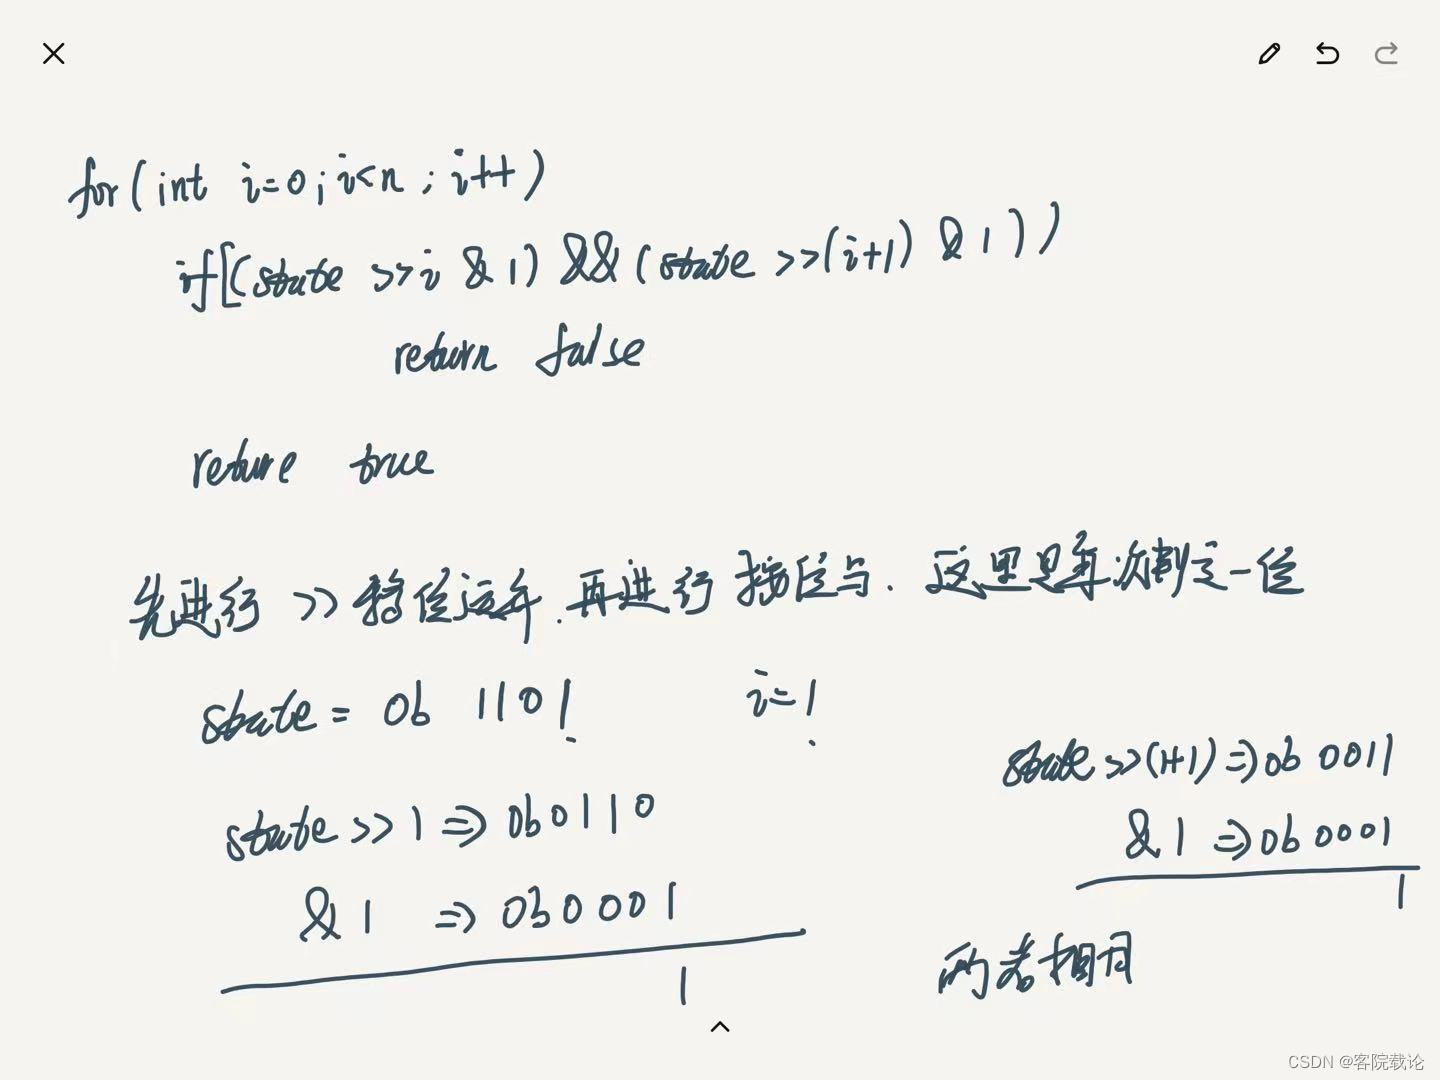 for(int i=0;i<n;i++)
if[(state >>i & 1) && (state >>(i+1) & 1))
return false
return true
先进行 >> 移位运算.再进行 按位与. 这里是每次判定一位
state = 0b 1101 i=1
state >>(i+1) => 0b 0011
& 1 => 0b 0001
1
state >> 1 => 0b0110
& 1 => 0b0001
1
两者相同
CSDN @客院载论